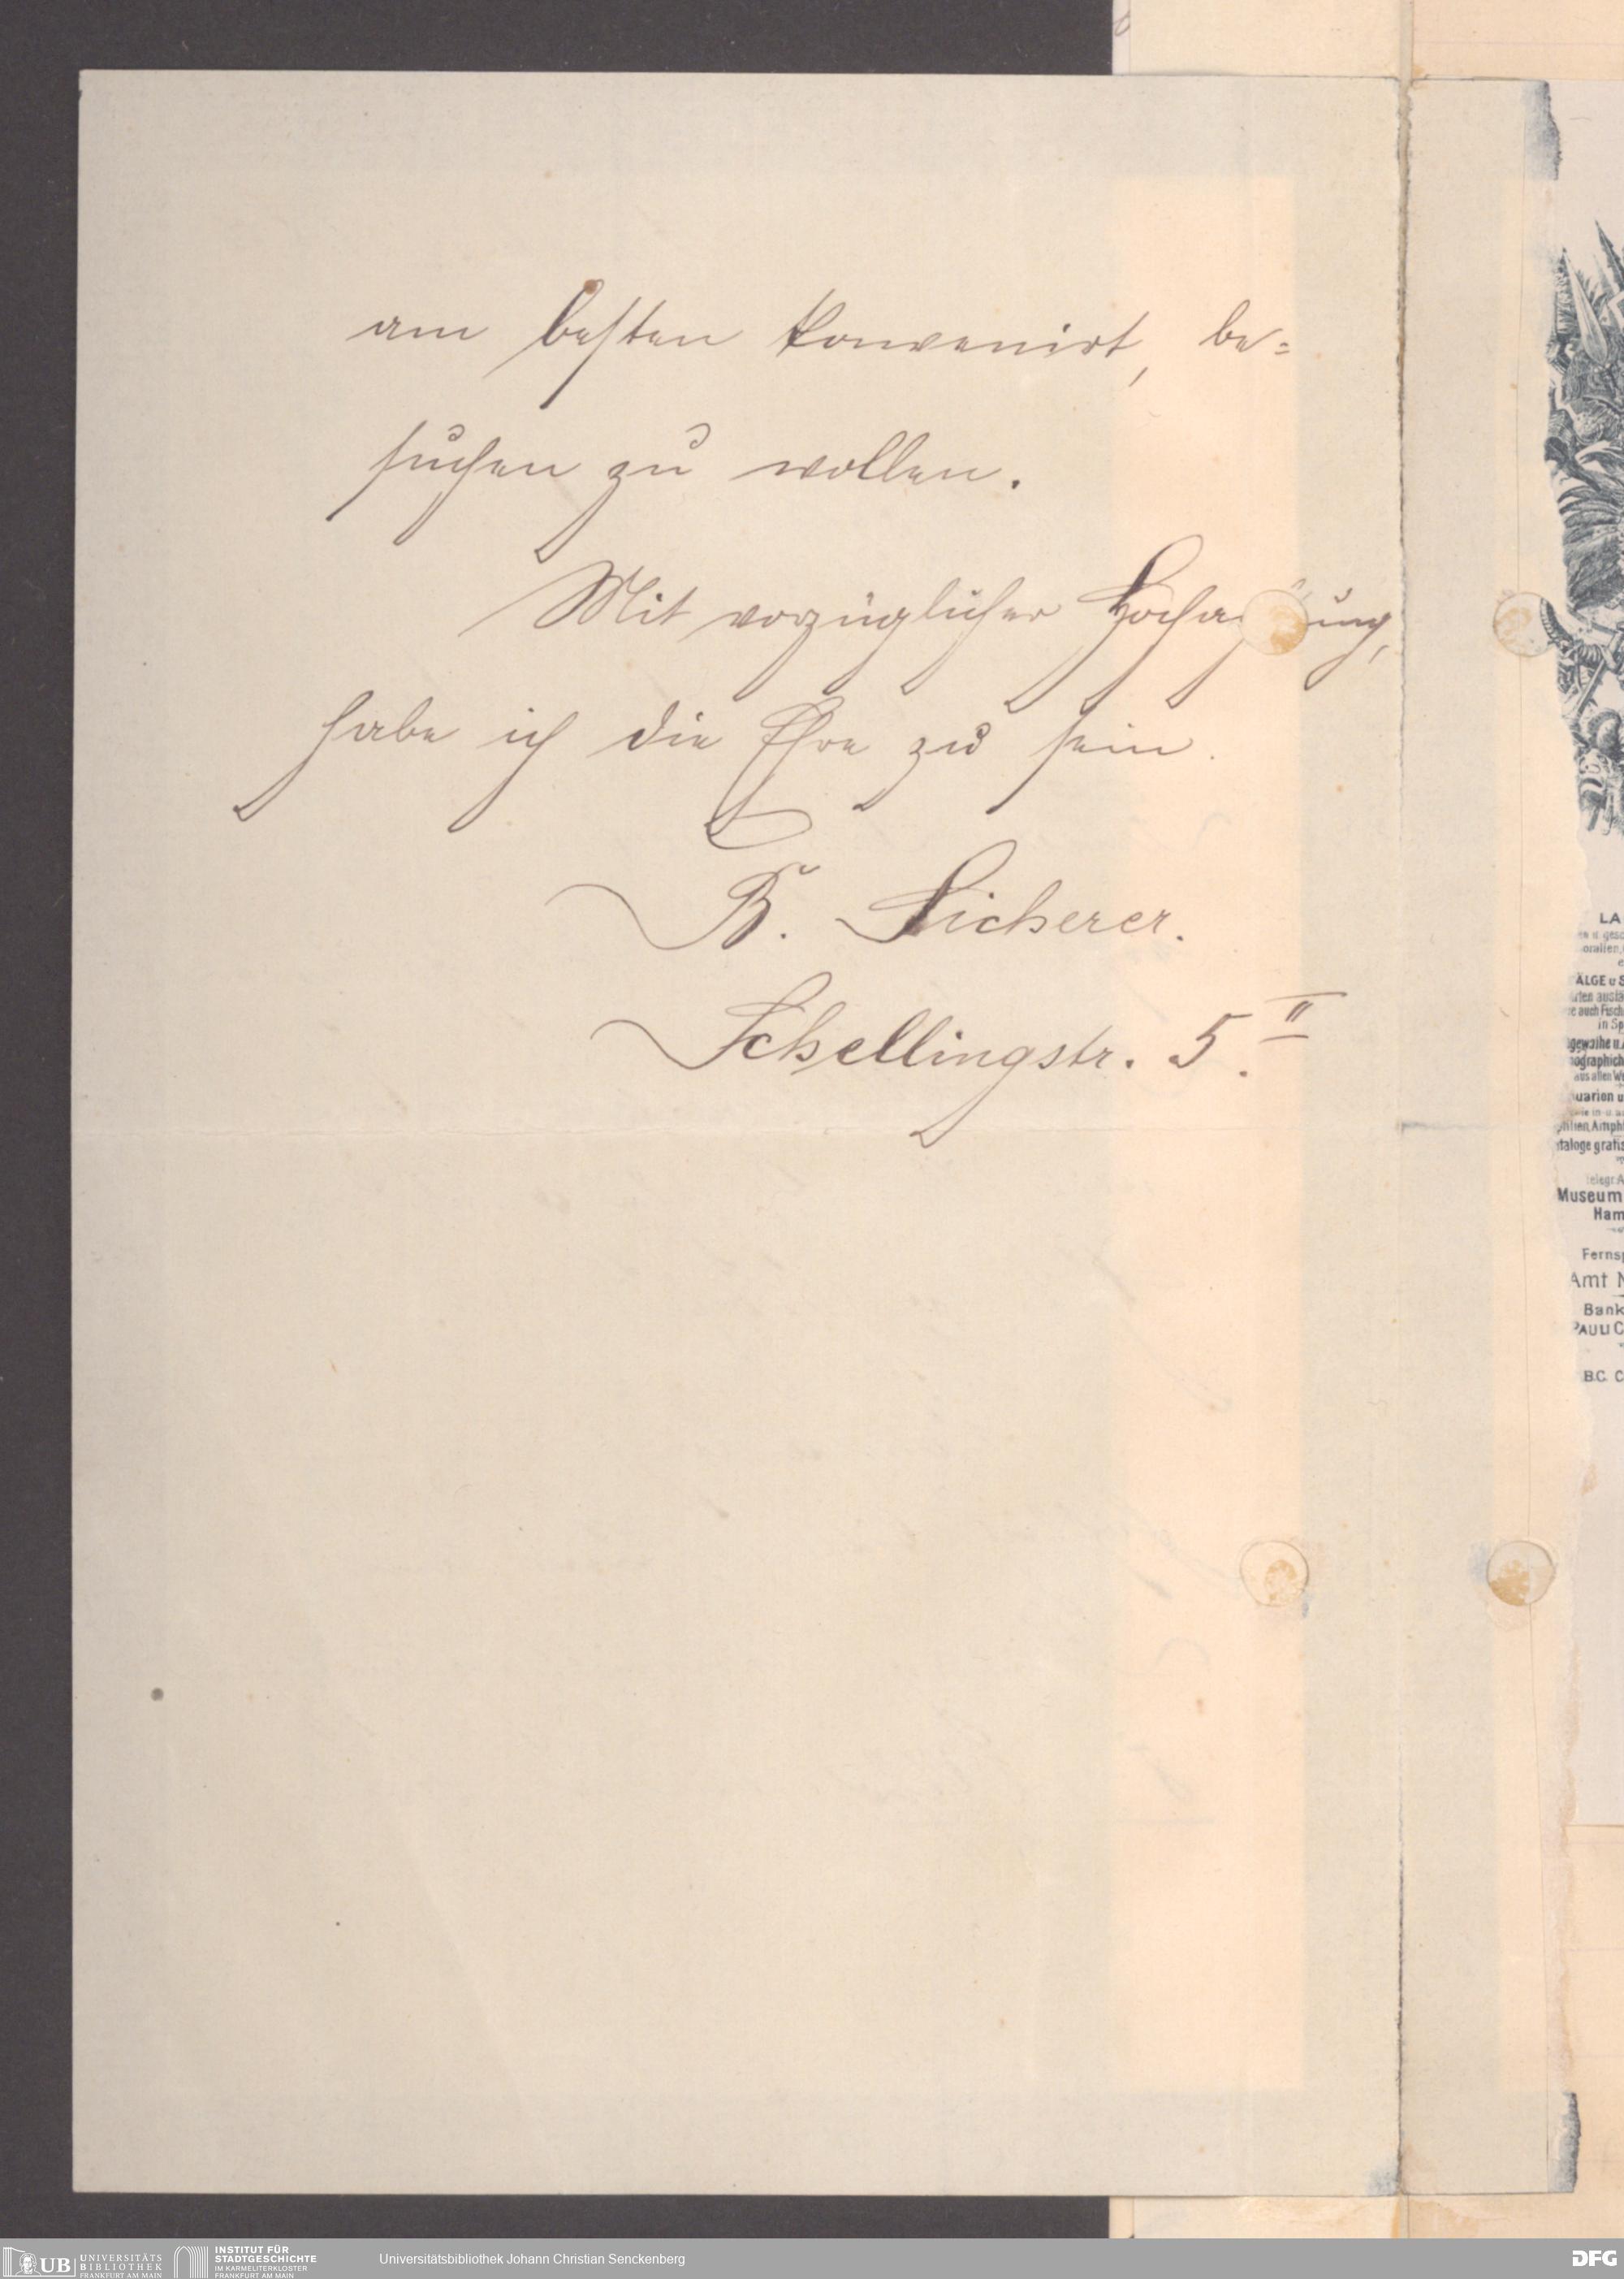 am besten konvenirt, be=
suchen zu wollen.
Mit vorzüglicher Hochachtung,
habe ich die Ehre zu sein.
B. Sicherer.
Schellingstr. 5.II
LA
ÄLGE u S
auch Fisch
in Sp
gratis
Museum
Ham
Ferns
Amt N
Bank
PAULI C
B.C. C
UB UNIVERSITÄTS
BIBLIOTHEK
FRANKFURT AM MAIN
INSTITUT FÜR
STADTGESCHICHTE
IM KARMELITERKLOSTER
FRANKFURT AM MAIN
Universitätsbibliothek Johann Christian Senckenberg
DFG